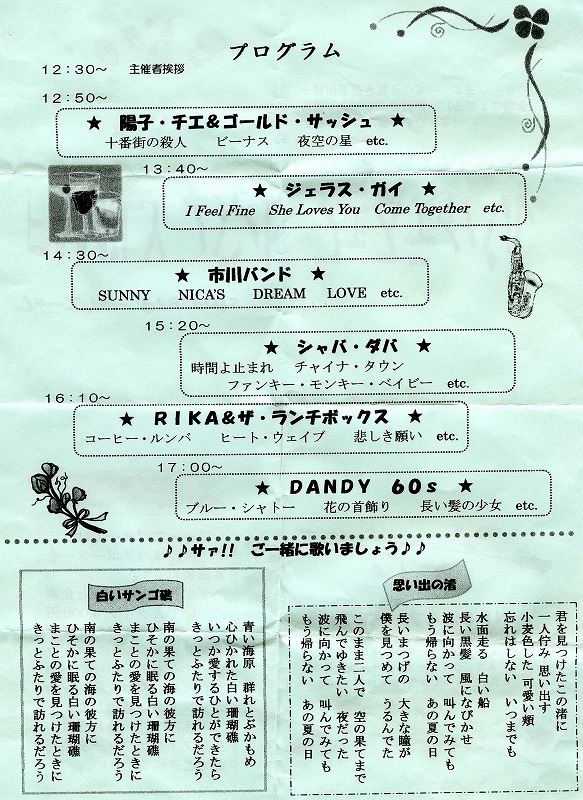 プログラム
12：30～　主催者挨拶
12：50～
★ 陽子・チエ＆ゴールド・サッシュ ★
十番街の殺人　ビーナス　夜空の星　etc.
13：40～
★ ジェラス・ガイ ★
I Feel Fine　She Loves You　Come Together　etc.
14：30～
★ 市川バンド ★
SUNNY　NICA'S　DREAM　LOVE　etc.
15：20～
★ シャバ・ダバ ★
時間よ止まれ　チャイナ・タウン
ファンキー・モンキー・ベイビー　etc.
16：10～
★ RIKA＆ザ・ランチボックス ★
コーヒー・ルンバ　ヒート・ウェイブ　悲しき願い　etc.
17：00～
★ DANDY 60s ★
ブルー・シャトー　花の首飾り　長い髪の少女　etc.
♪♪サァ!!　ご一緒に歌いましょう♪♪
思い出の渚
君を見つけたこの渚に
一人佇み 思い出す
小麦色した 可愛い頬
忘れはしない いつまでも
水面走る 白い船
長い黒髪 風になびかせ
波に向かって 叫んでみても
もう帰らない あの夏の日
長いまつげの 大きな瞳が
僕を見つめて うるんでた
このまま二人で 空の果てまで
飛んでゆきたい 夜だった
波に向かって 叫んでみても
もう帰らない あの夏の日
白いサンゴ礁
青い海原 群れとぶかもめ
心ひかれた白い珊瑚礁
いつか愛するひとができたら
きっとふたりで訪れるだろう
南の果ての海の彼方に
ひそかに眠る白い珊瑚礁
まことの愛を見つけたときに
きっとふたりで訪れるだろう
南の果ての海の彼方に
ひそかに眠る白い珊瑚礁
まことの愛を見つけたときに
きっとふたりで訪れるだろう